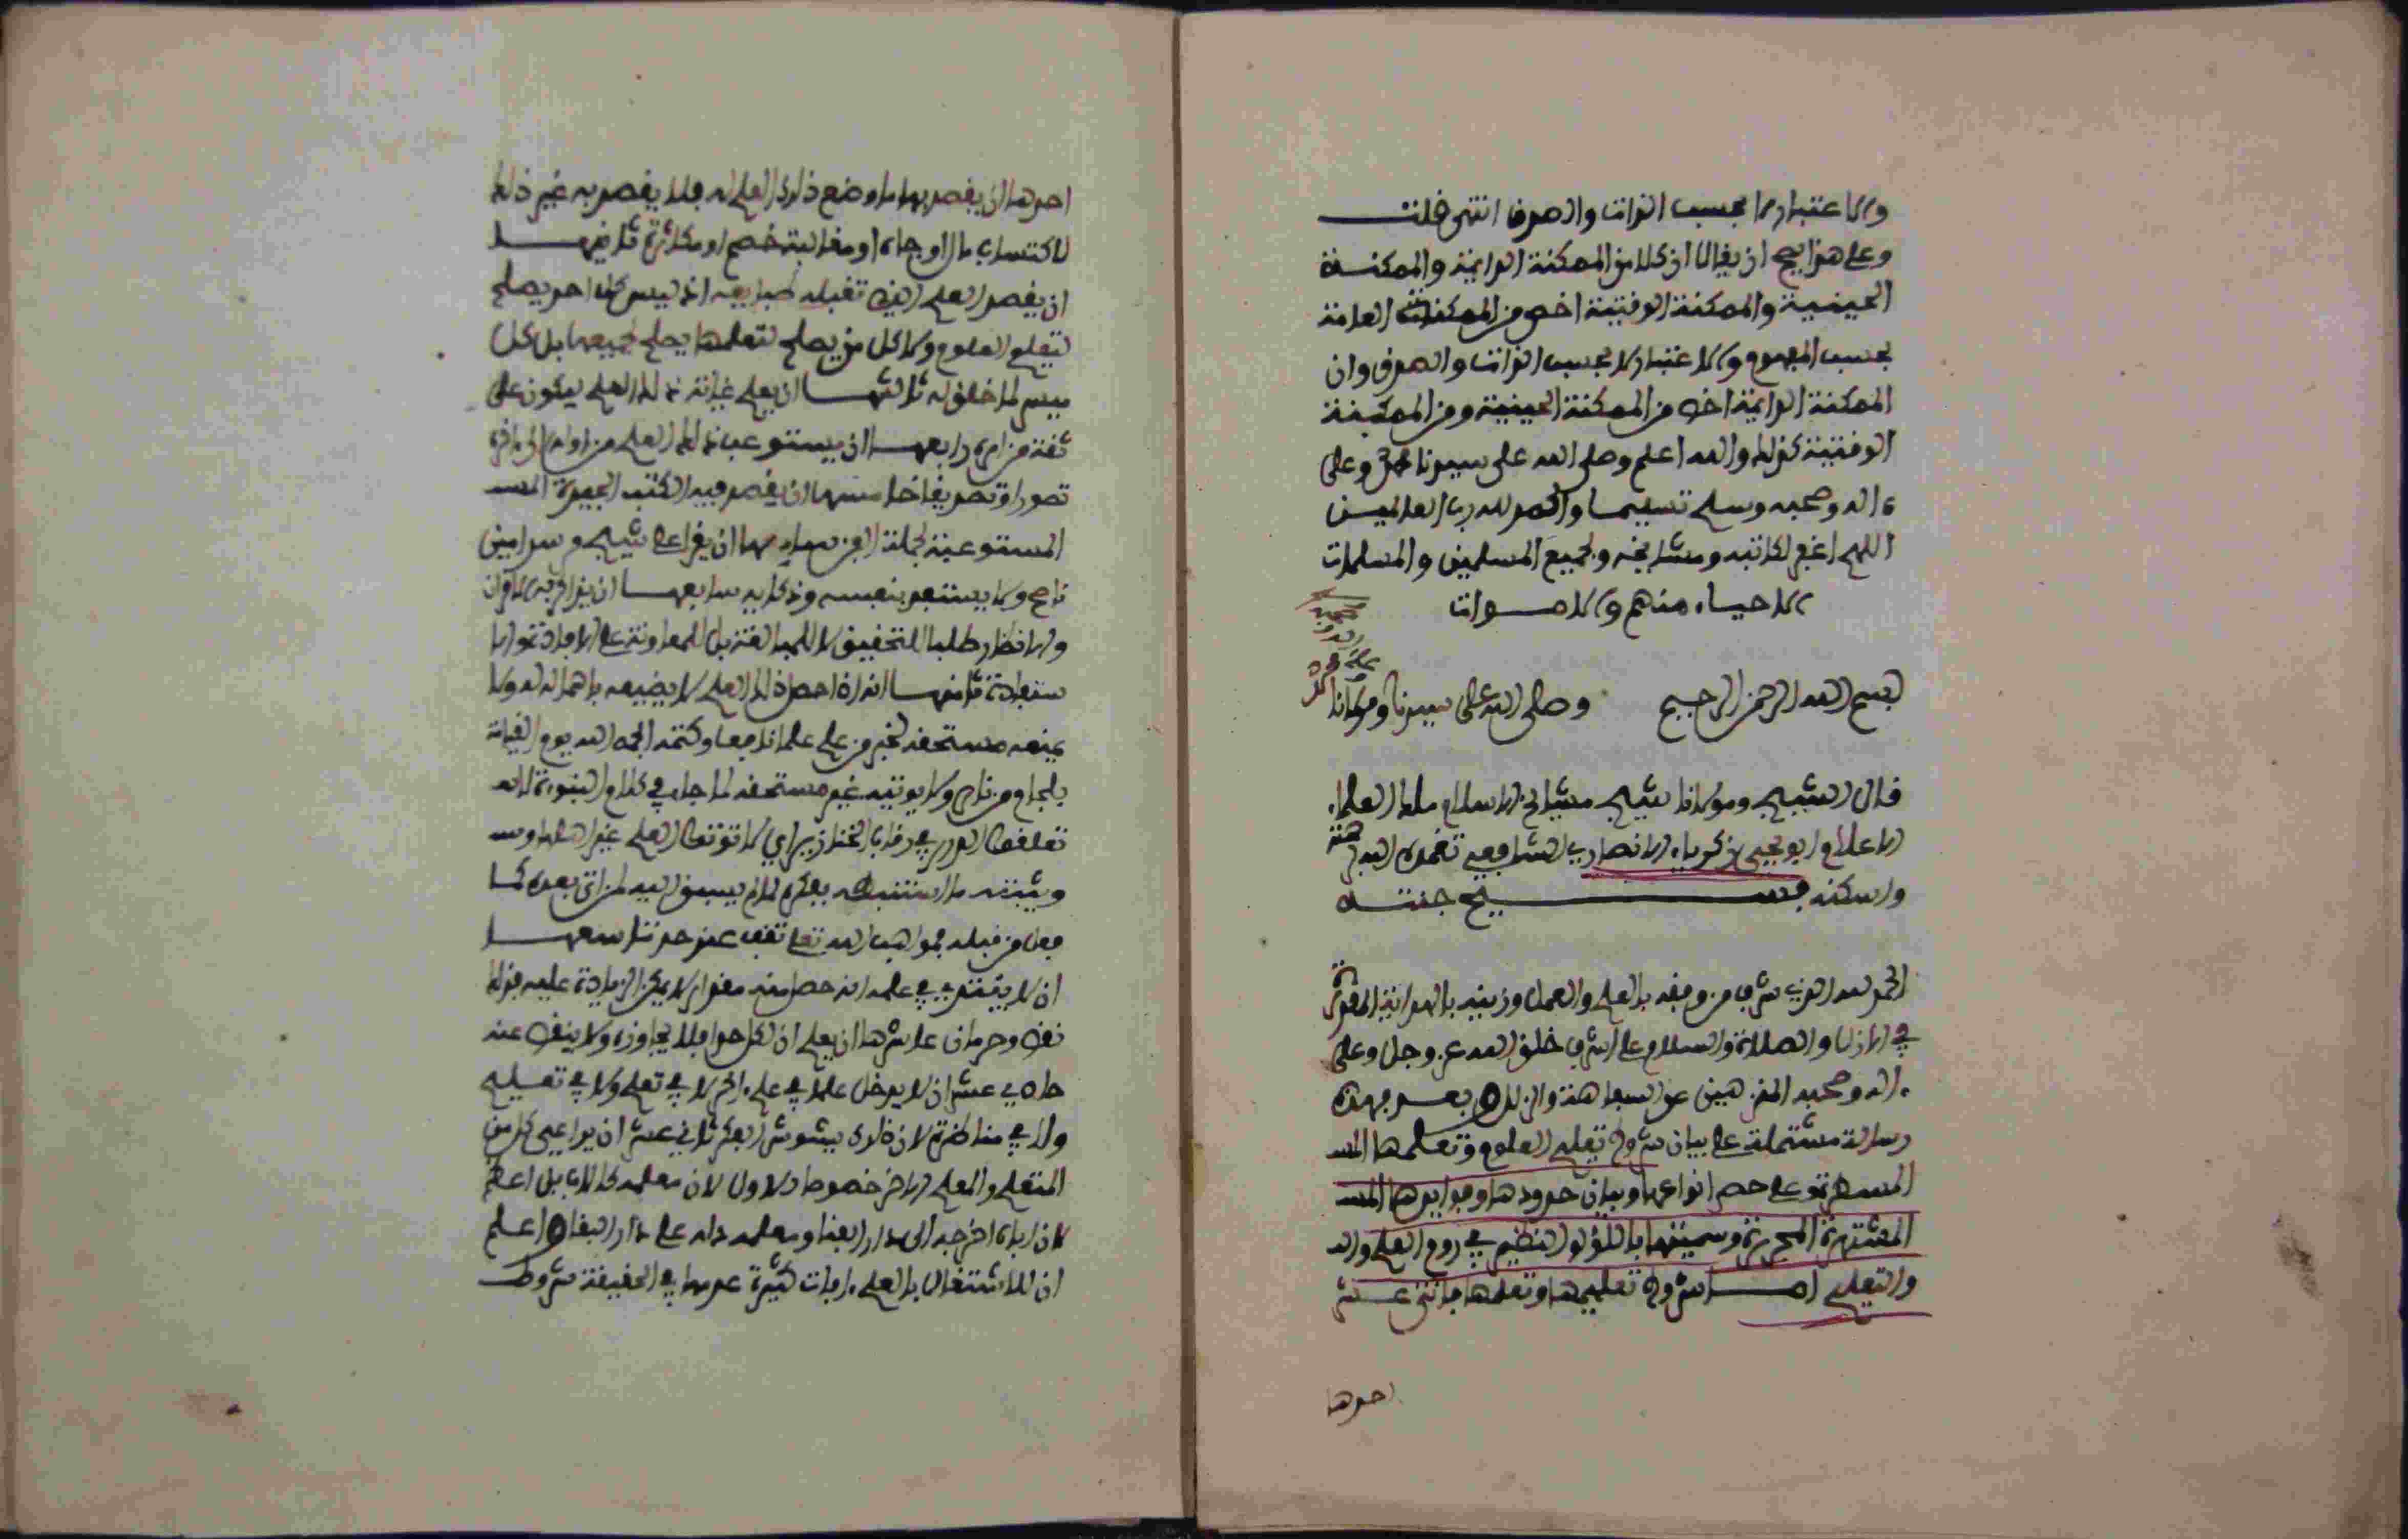 والاعتبار لا بحسب الذات والصدق انتهى قلت
وعلى هذا يصح ان يقال ان كلا من الممكنة الدايمة والممكنة
الحينية والممكنة الوقتية اخص من الممكنة العامة
بحسب المفهوم والاعتبار لا بحسب الذات والصدق وان
الممكنة الدايمة اخص من الممكنة الحينية ومن الممكنة
الوقتية كذلك والله اعلم وصلى الله على سيدنا محمد وعلى
ءاله وصحبه وسلم تسليما والحمد لله رب العالمين
اللهم اغفر لكاتبه ومشايخه ولجميع المسلمين والمسلمات
الاحياء منهم والاموات
بسم الله الرحمن الرحيم وصلى الله على سيدنا ومولانا
محمد وعلى ءاله وصحبه
قال الشيخ ومولانا شيخ مشايخ الاسلام ملك العلماء
الاعلام ابو يحيى زكرياء الانصاري الشافعي تغمده الله برحمته
واسكنه فسيح جنته
الحمد لله الذي شرف من وفقه بالعلم والعمل وزينه بالهداية المقدرة
في الازل والصلاة والسلام على اشرف خلق الله عز وجل وعلى
ءاله وصحبه المنزهين عن السفاهة والزلل وبعد فهذه
رسالة مشتملة على بيان شروط تعليم العلوم وتعلمها المس
المس على حصر انواعها وبيان حدودها وفوايدها المس
المشتهرة المحررة وسميتها باللؤلؤ النظيم في روم العلم وال
والتعليم اما شروط تعليمها وتعلمها فاثنى عشر
احدها
احدها ان يقصد بها ما وضع ذلك العلم له فلا يقصد به غير ذلك
لاكتساب مال او جاه او مغالبة خصم او مكاثرة ثانيها
ان يقصد العلم الذي تقبله طبايعه اذ ليس كل احد يصلح
لتعلم العلوم ولا كل من يصلح لتعلمها يصلح لجميعها بل كل
ميسر لما خلق له ثالثها ان يعلم غاية ذلك العلم ليكون على
ثقة من امره رابعها ان يستوعب ذلك العلم من اوله الى ءاخره
تصورا وتصديقا خامسها ان يقصد فيه الكتب الجيدة المس
المستوعبة لجملة الفن سادسها ان يقرا على شيخ مرشد امين
ناصح ولا يستبد بنفسه وذكايه سابعها ان يذاكر به الاقران
والانظار طلبا للتحقيق لا للمغالبة بل للمعاونة على الافادة والا
ستفادة ثامنها انه اذا حصل ذلك العلم لا يضيعه باهماله ولا
يمنعه مستحقه لخبر من علم علما نافعا وكتمه الجمه الله يوم القيامة
بلجام من نار ولا يوتيه غير مستحقه لما جاء في كلام النبوءة لا
تعلقوا الدرر في رقاب الخنازير اي لا تؤتوا العلم غير اهله
ويثبت ما استنبطه بفكره مما لم يسبق اليه لمن اتى بعده كما
فعل من قبله فمواهب الله تعلى تقف عند حد تاسعها
ان لا يعتقد في علمه انه حصل منه مقدار لا يمكن الزيادة عليه فذلك
نقص وحرمان عاشرها ان يعلم ان لكل حدا فلا يجاوزه ولا ينقص عنه
حادي عشر ان لا يدخل علما في علم ءاخر لا في تعلم ولا في تعليم
ولا في مناظرة لان ذلك يشوش الفكر ثاني عشر ان يراعي كل من
المتعلم والمعلم الاخر خصوصا الاول لان معلمه كالاب بل اعظم
لان اباه اخرجه الى دار الفنا ومعلمه دله على دار البقا واعلم
ان للاشتغال بالعلم ءافات كثيرة عدمها في الحقيقة شروط